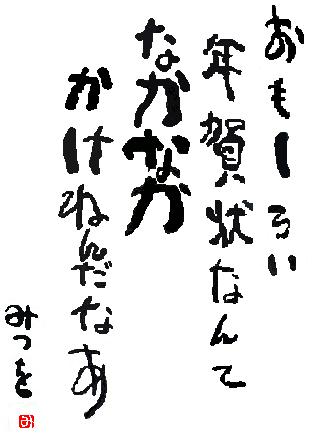 おもしろい
年賀状なんて
なかなか
かけねんだなあ
みつを